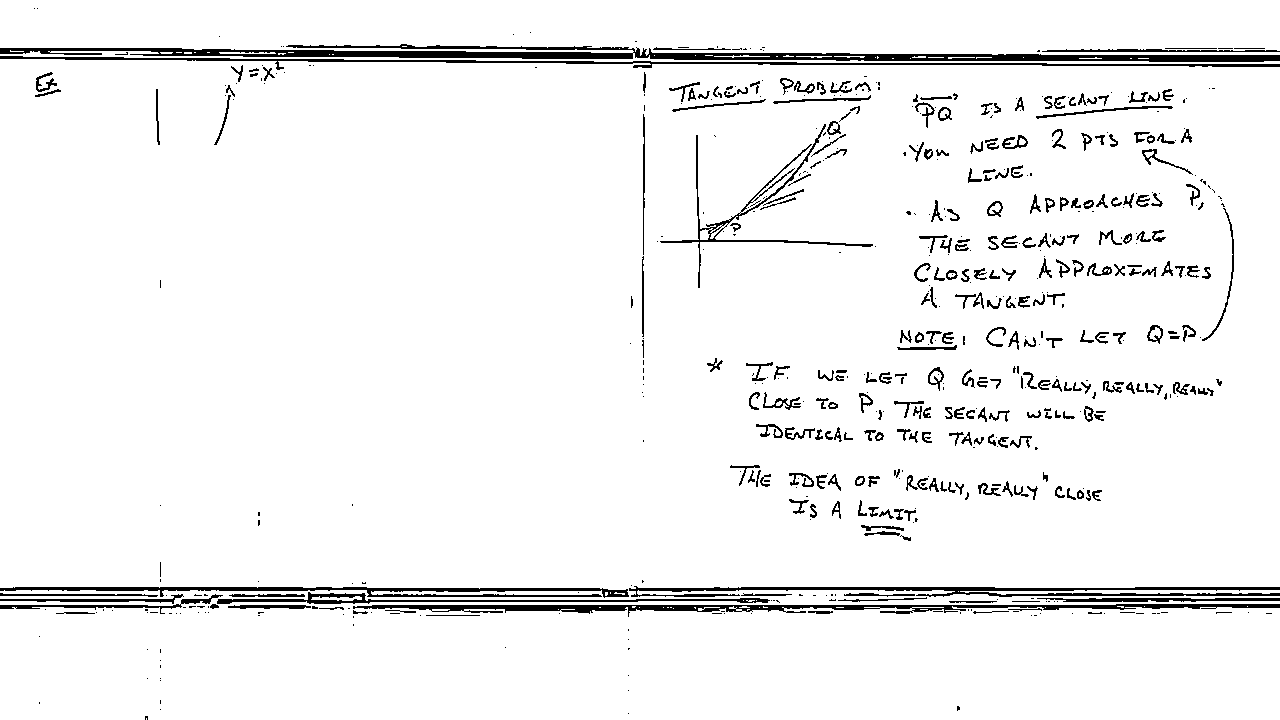 Ex
Y = X²
TANGENT PROBLEM:
Q
P
PQ IS A SECANT LINE.
• YOU NEED 2 PTS FOR A
LINE.
• AS Q APPROACHES P,
THE SECANT MORE
CLOSELY APPROXIMATES
A TANGENT.
NOTE: CAN'T LET Q=P
* IF WE LET Q GET "REALLY, REALLY, REALLY"
CLOSE TO P, THE SECANT WILL BE
IDENTICAL TO THE TANGENT.
THE IDEA OF "REALLY, REALLY" CLOSE
IS A LIMIT.